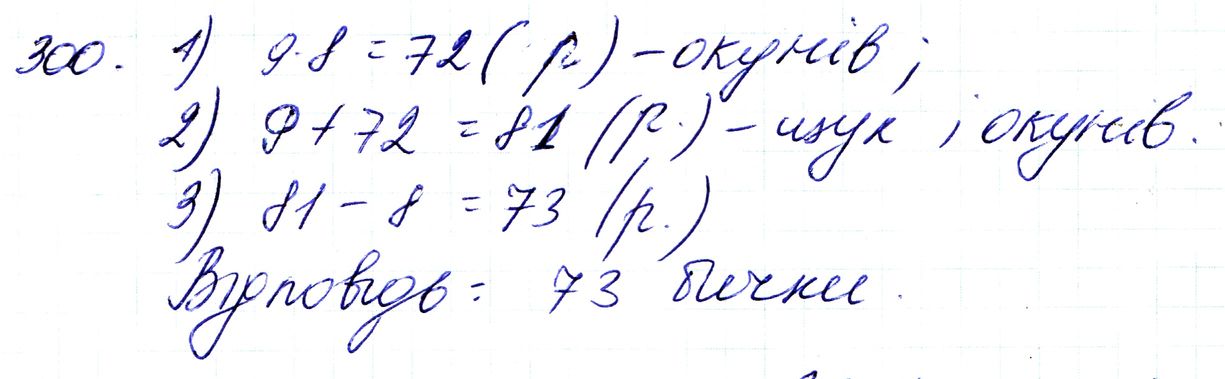 300. 1) 9·8 = 72 (р) – окунів;
2) 9 + 72 = 81 (р.) – щук і окунів.
3) 81 – 8 = 73 (р.)
Відповідь: 73 бички.